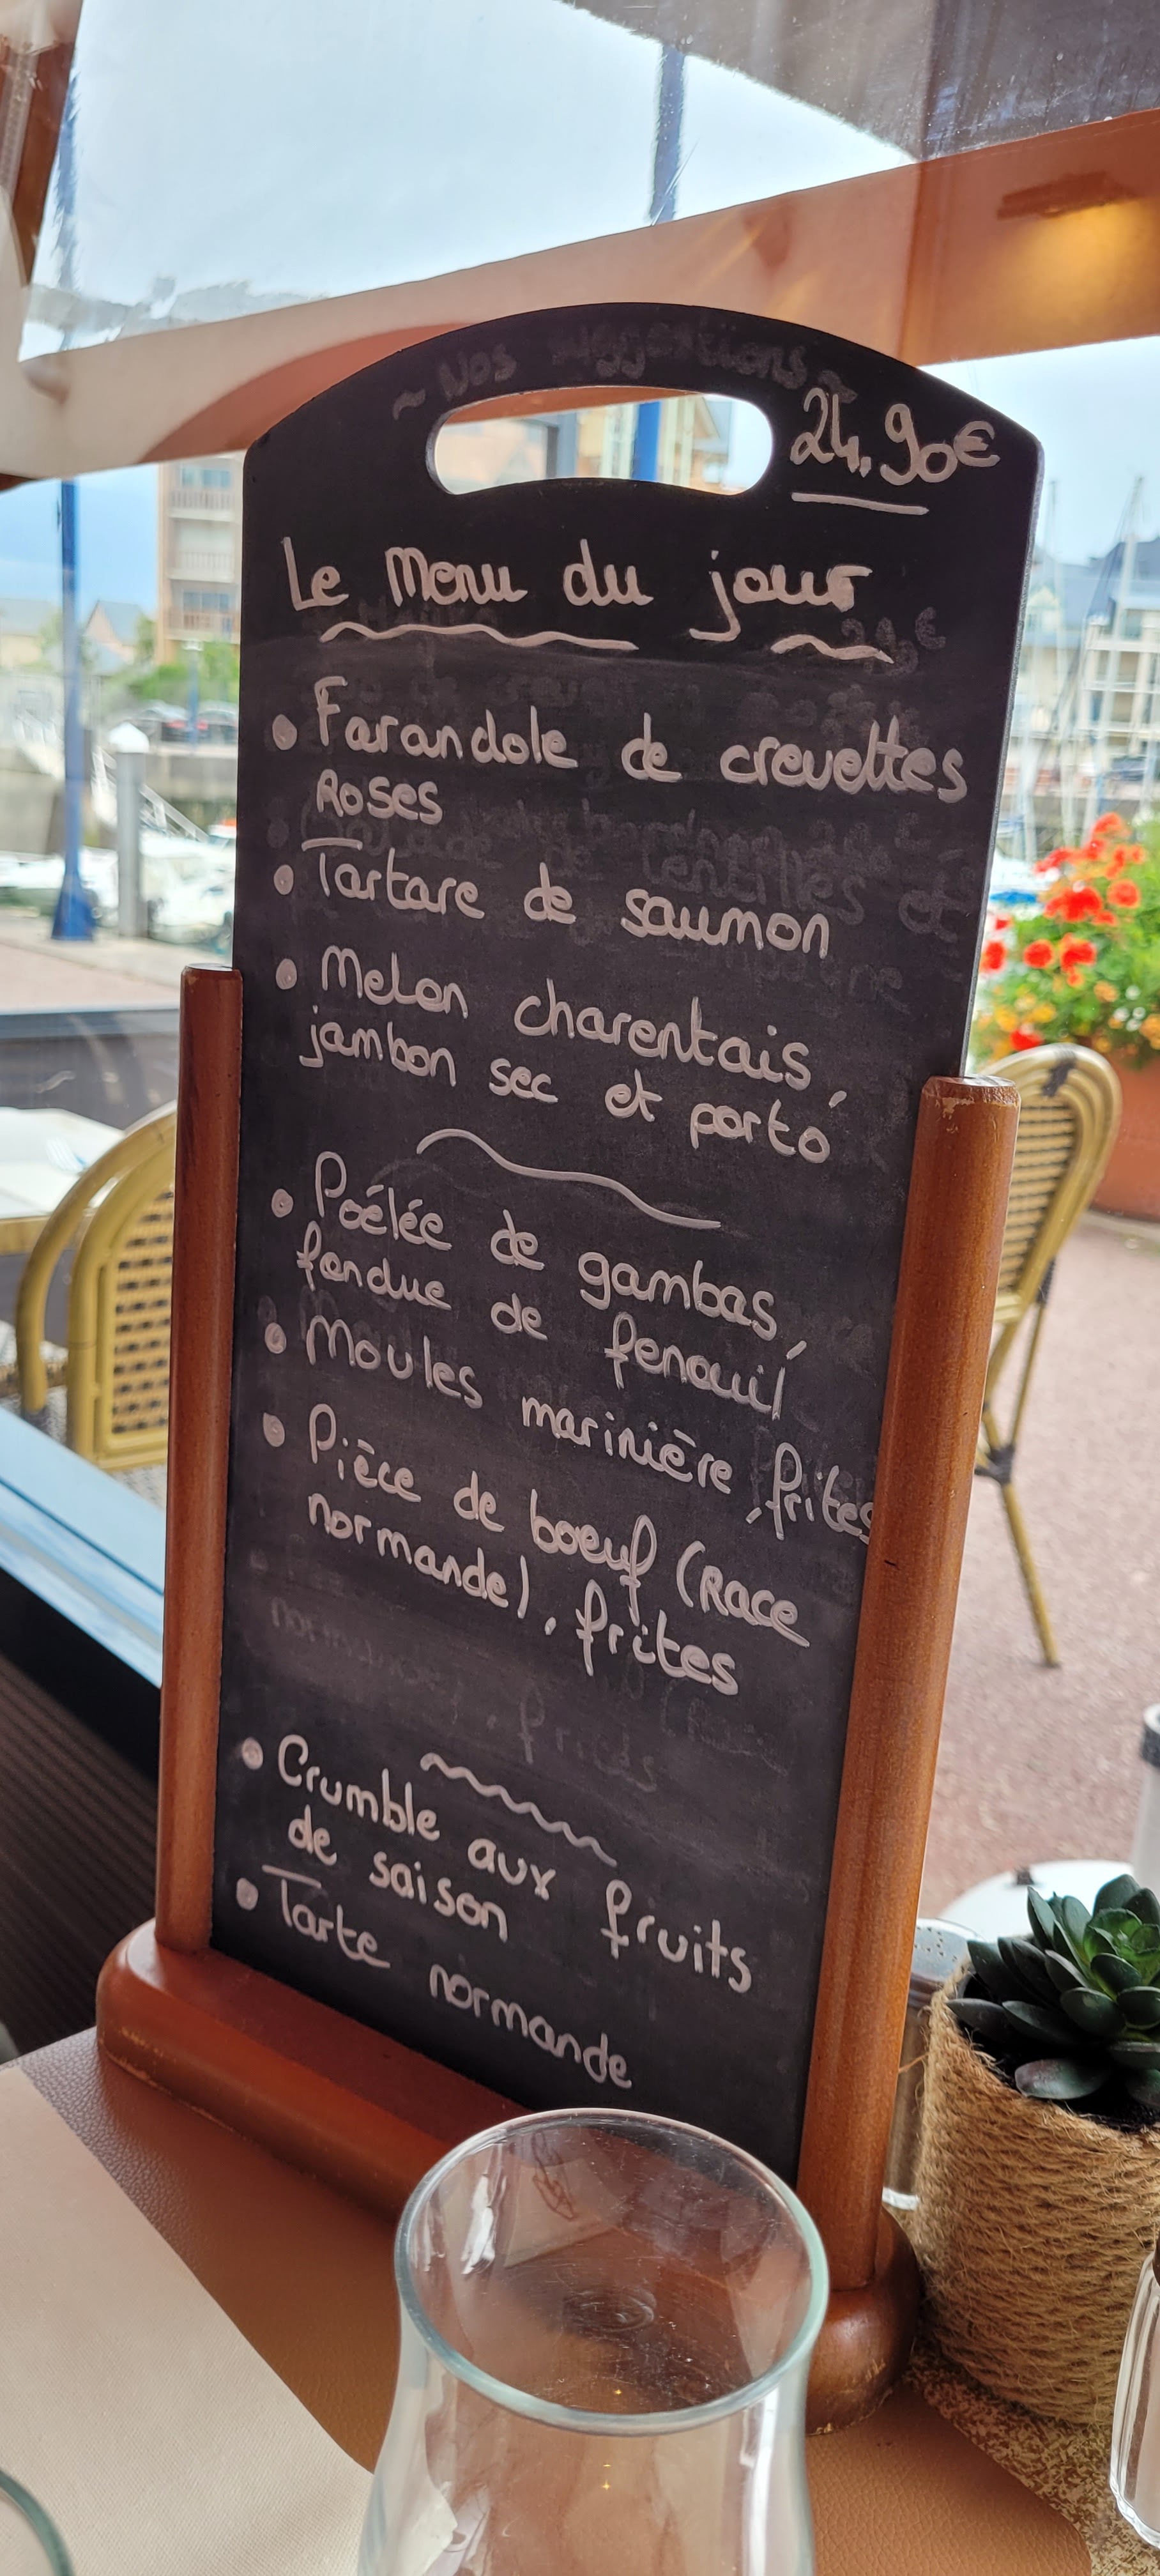 ~ Nos suggestions ~
24,90€
Le Menu du jour
• Farandole de crevettes
Roses
• Tartare de saumon
• Melon charentais,
jambon sec et porto
• Poêlée de gambas,
fondue de fenouil
• Moules marinière, frites
• Pièce de boeuf (Race
normande), frites
• Crumble aux fruits
de saison
• Tarte normande